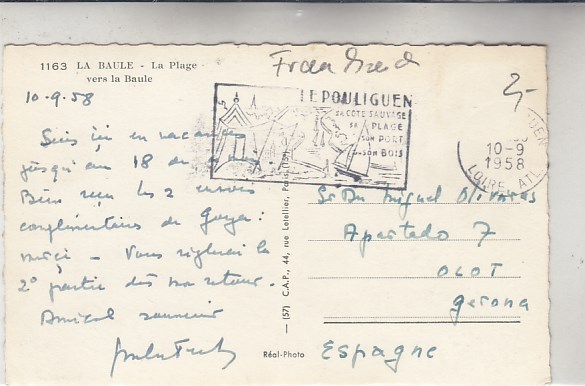 1163 LA BAULE - La Plage
vers la Baule
Fran
10-9.58
LE POULIGUEN
SA COTE SAUVAGE
SA PLAGE
SON PORT
SON BOIS
10-9
1958
LOIRE ATL.
Suis ici en vacances
jusqu'au 18 de ce mois.
Bien reçu les 2 envois
complémentaires de Goya:
merci - Vous réglerai la
2º partie dès mon retour.
Amical souvenir
(57) C.A.P., 44, rue Letellier, Paris (15e)
Réal-Photo
Sr Dn Miguel Olivaras
Apartado 7
OLOT
Gerona
Espagne